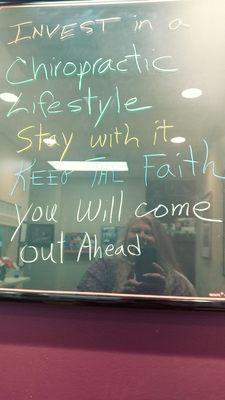 INVEST in a
Chiropractic
Lifestyle
Stay with it
KEEP THE Faith
you will come
out Ahead